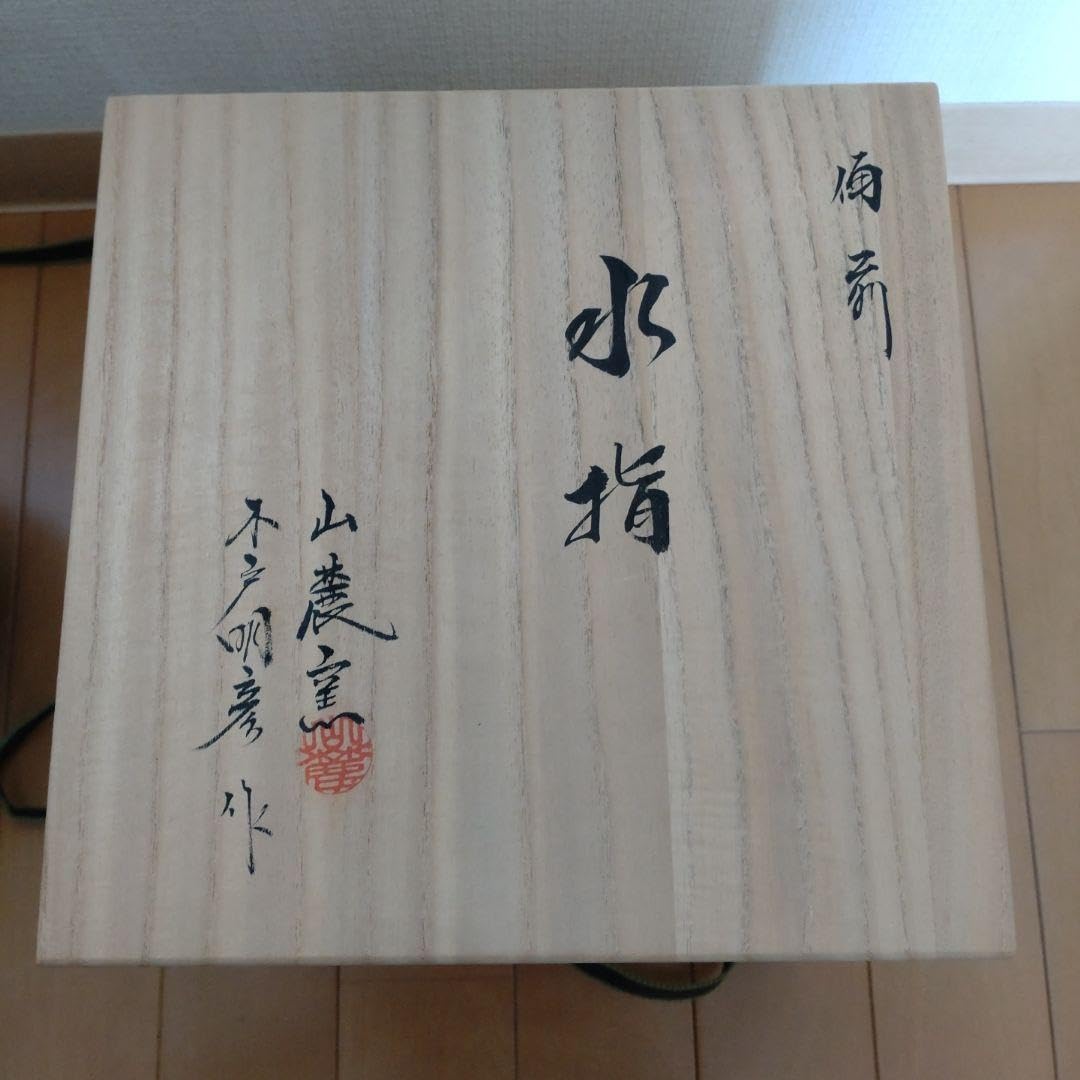 備前
水指
山麓窯
木戸明彦作